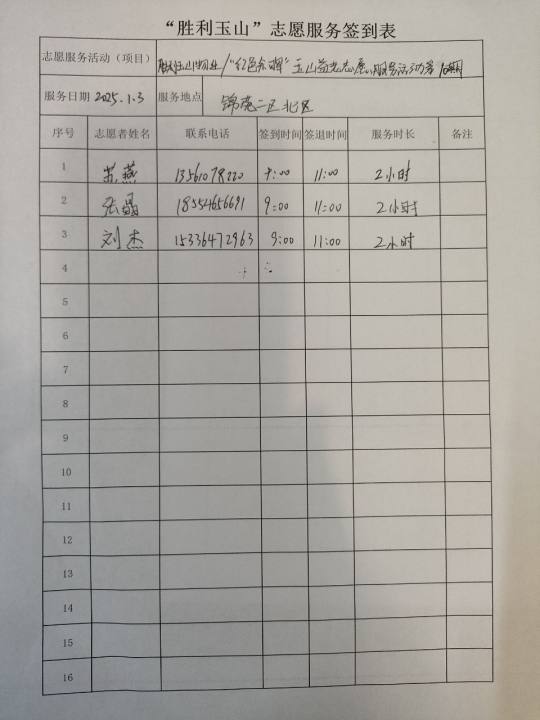 “胜利玉山”志愿服务签到表
志愿服务活动（项目） 胜利玉山物业/“红色余晖”玉山党员志愿服务活动第
服务日期 2025.1.3 服务地点 锦苑二区北区
序号 志愿者姓名 联系电话 签到时间 签退时间 服务时长 备注
1 苏燕 13561078220 9:00 11:00 2小时
2 张晶 18554656691 9:00 11:00 2小时
3 刘杰 15336472963 9:00 11:00 2小时
4
5
6
7
8
9
10
11
12
13
14
15
16